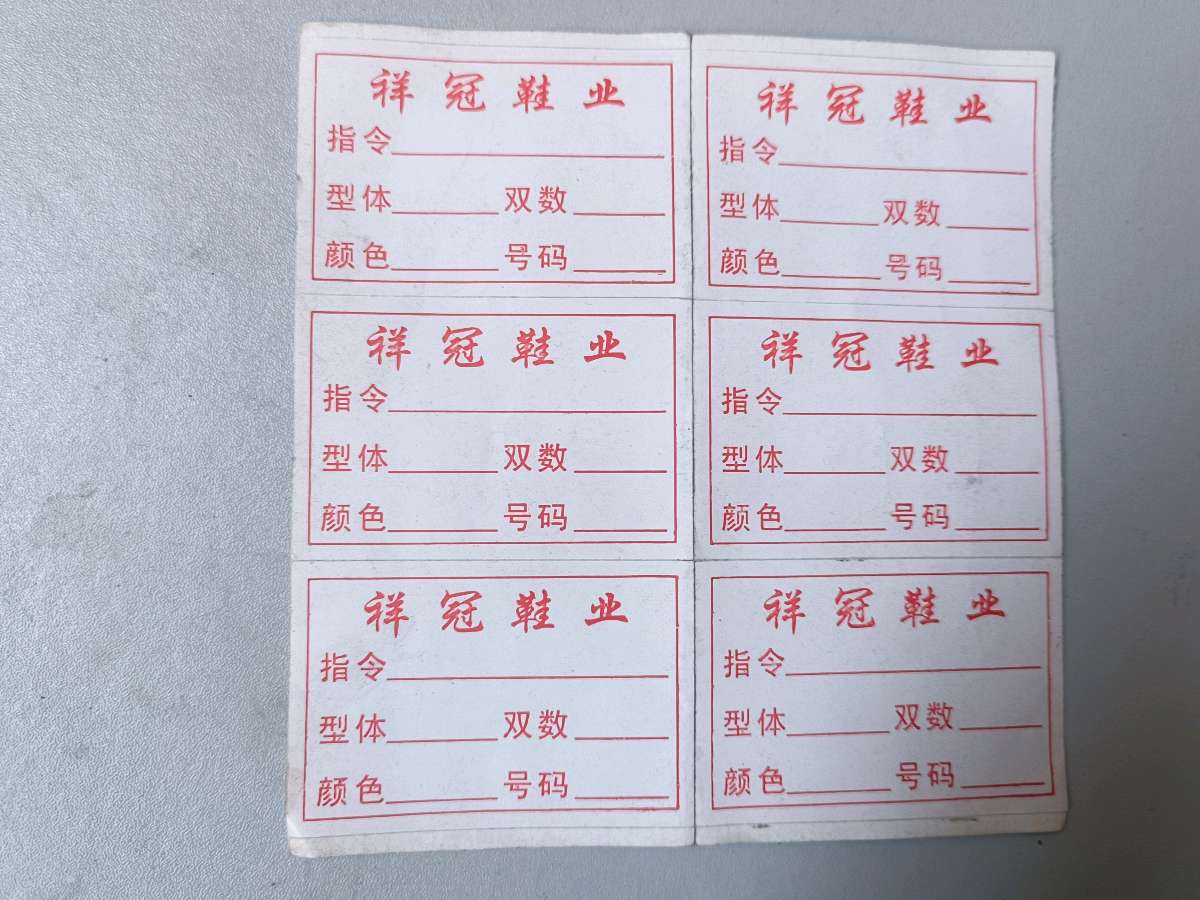 祥冠鞋业
指令
型体 双数
颜色 号码
祥冠鞋业
指令
型体 双数
颜色 号码
祥冠鞋业
指令
型体 双数
颜色 号码
祥冠鞋业
指令
型体 双数
颜色 号码
祥冠鞋业
指令
型体 双数
颜色 号码
祥冠鞋业
指令
型体 双数
颜色 号码